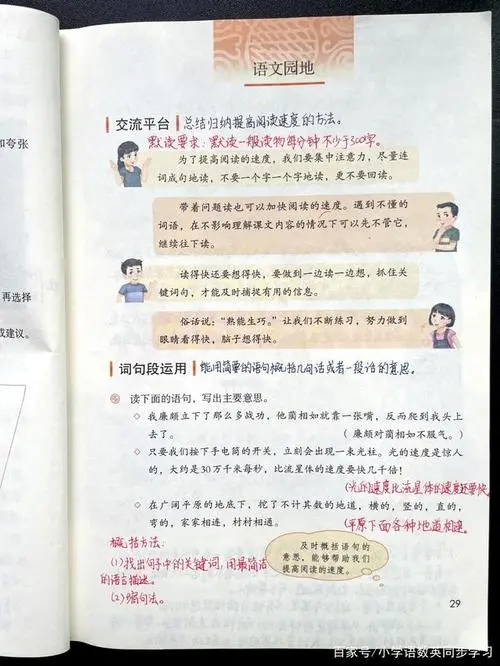 语文园地
和夸张
交流平台 总结归纳提高阅读速度的方法。
默读要求：默读一般读物每分钟不少于300字。
为了提高阅读的速度，我们要集中注意力，尽量连
词成句地读，不要一个字一个字地读，更不要回读。
带着问题读也可以加快阅读的速度。遇到不懂的
词语，在不影响理解课文内容的情况下可以先不管它，
继续往下读。
读得快还要想得快，要做到一边读一边想，抓住关
键词句，才能及时捕捉有用的信息。
再选择
或建议。
俗话说：“熟能生巧。”让我们不断练习，努力做到
眼睛看得快，脑子想得快。
词句段运用 能用简单的语句概括几句话或者一段话的意思。
读下面的语句，写出主要意思。
◇ 我廉颇立下了那么多战功，他蔺相如就靠一张嘴，反而爬到我头上
去了。 （廉颇对蔺相如不服气。）
◇ 只要我们按下手电筒的开关，立刻会出现一束光柱。光的速度是惊人
的，大约是30万千米每秒，比流星体的速度要快几千倍！
（光的速度比流星体的速度还要快。）
◇ 在广阔平原的地底下，挖了不计其数的地道，横的，竖的，直的，
弯的，家家相连，村村相通。 （平原下面各种地道相连。）
概括方法：
(1)找出句子中的关键词，用最简洁
的语言描述。
(2)缩句法。
及时概括语句的
意思，能够帮助我们
提高阅读的速度。
29
百家号/小学语数英同步学习